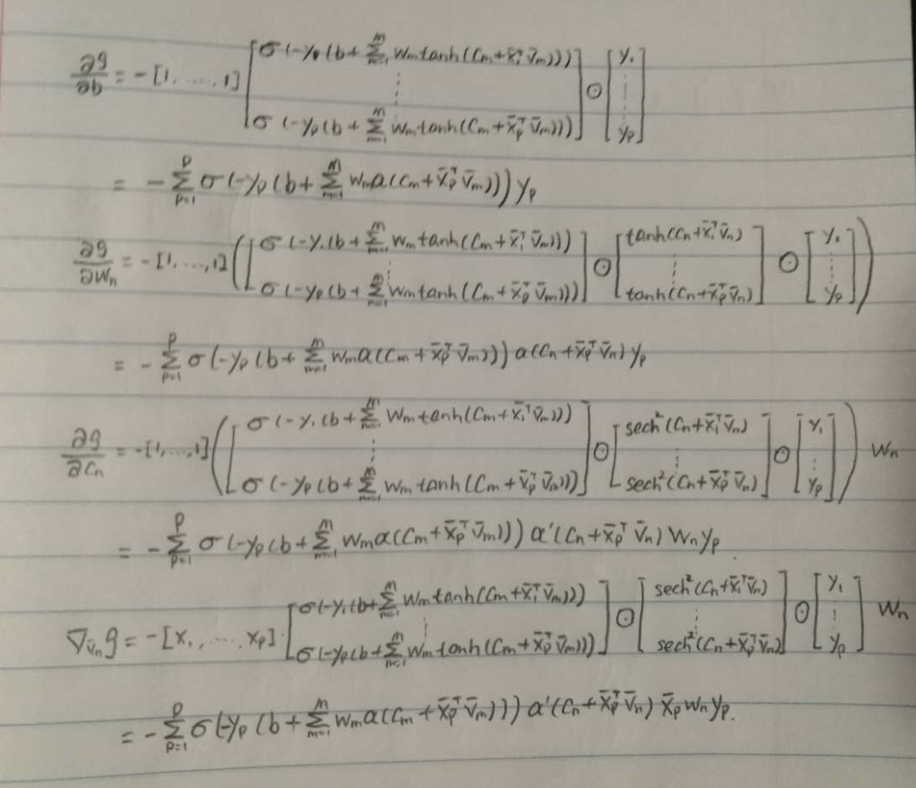 ∂g/∂b = -[1, ..., 1] [σ(-y₁(b + Σ_{m=1}^{M} wₘtanh(cₘ + x̄₁ᵀv̄ₘ))) ⋮ σ(-y_P(b + Σ_{m=1}^{M} wₘtanh(cₘ + x̄_Pᵀv̄ₘ)))] ⊙ [y₁ ⋮ y_P]
= -Σ_{p=1}^{P} σ(-y_p(b + Σ_{m=1}^{M} wₘa(cₘ + x̄_pᵀv̄ₘ))) y_p
∂g/∂wₙ = -[1, ..., 1] ([σ(-y₁(b + Σ_{m=1}^{M} wₘtanh(cₘ + x̄₁ᵀv̄ₘ))) ⋮ σ(-y_P(b + Σ_{m=1}^{M} wₘtanh(cₘ + x̄_Pᵀv̄ₘ)))] ⊙ [tanh(cₙ + x̄₁ᵀv̄ₙ) ⋮ tanh(cₙ + x̄_Pᵀv̄ₙ)] ⊙ [y₁ ⋮ y_P])
= -Σ_{p=1}^{P} σ(-y_p(b + Σ_{m=1}^{M} wₘa(cₘ + x̄_pᵀv̄ₘ))) a(cₙ + x̄_pᵀv̄ₙ) y_p
∂g/∂cₙ = -[1, ..., 1] ([σ(-y₁(b + Σ_{m=1}^{M} wₘtanh(cₘ + x̄₁ᵀv̄ₘ))) ⋮ σ(-y_P(b + Σ_{m=1}^{M} wₘtanh(cₘ + x̄_Pᵀv̄ₘ)))] ⊙ [sech²(cₙ + x̄₁ᵀv̄ₙ) ⋮ sech²(cₙ + x̄_Pᵀv̄ₙ)] ⊙ [y₁ ⋮ y_P]) wₙ
= -Σ_{p=1}^{P} σ(-y_p(b + Σ_{m=1}^{M} wₘa(cₘ + x̄_pᵀv̄ₘ))) a'(cₙ + x̄_pᵀv̄ₙ) wₙy_p.
∇_{v̄ₙ} g = -[x₁, ... x_P]·[σ(-y₁(b + Σ_{m=1}^{M} wₘtanh(cₘ + x̄₁ᵀv̄ₘ))) ⋮ σ(-y_P(b + Σ_{m=1}^{M} wₘtanh(cₘ + x̄_Pᵀv̄ₘ)))] ⊙ [sech²(cₙ + x̄₁ᵀv̄ₙ) ⋮ sech²(cₙ + x̄_Pᵀv̄ₙ)] ⊙ [y₁ ⋮ y_P] wₙ
= -Σ_{p=1}^{P} σ(-y_p(b + Σ_{m=1}^{M} wₘa(cₘ + x̄_pᵀv̄ₘ))) a'(cₙ + x̄_pᵀv̄ₙ) x̄_p wₙy_p.